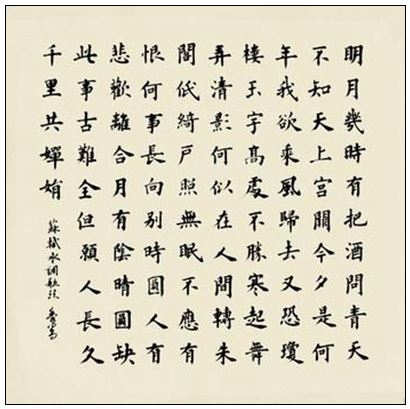 明月幾時有把酒問青天
不知天上宮闕今夕是何
年我欲乘風歸去又恐瓊
樓玉宇高處不勝寒起舞
弄清影何似在人間轉朱
閣低綺戶照無眠不應有
恨何事長向别時圓人有
悲歡離合月有陰晴圓缺
此事古難全但願人長久
千里共嬋娟
蘇軾水調歌頭